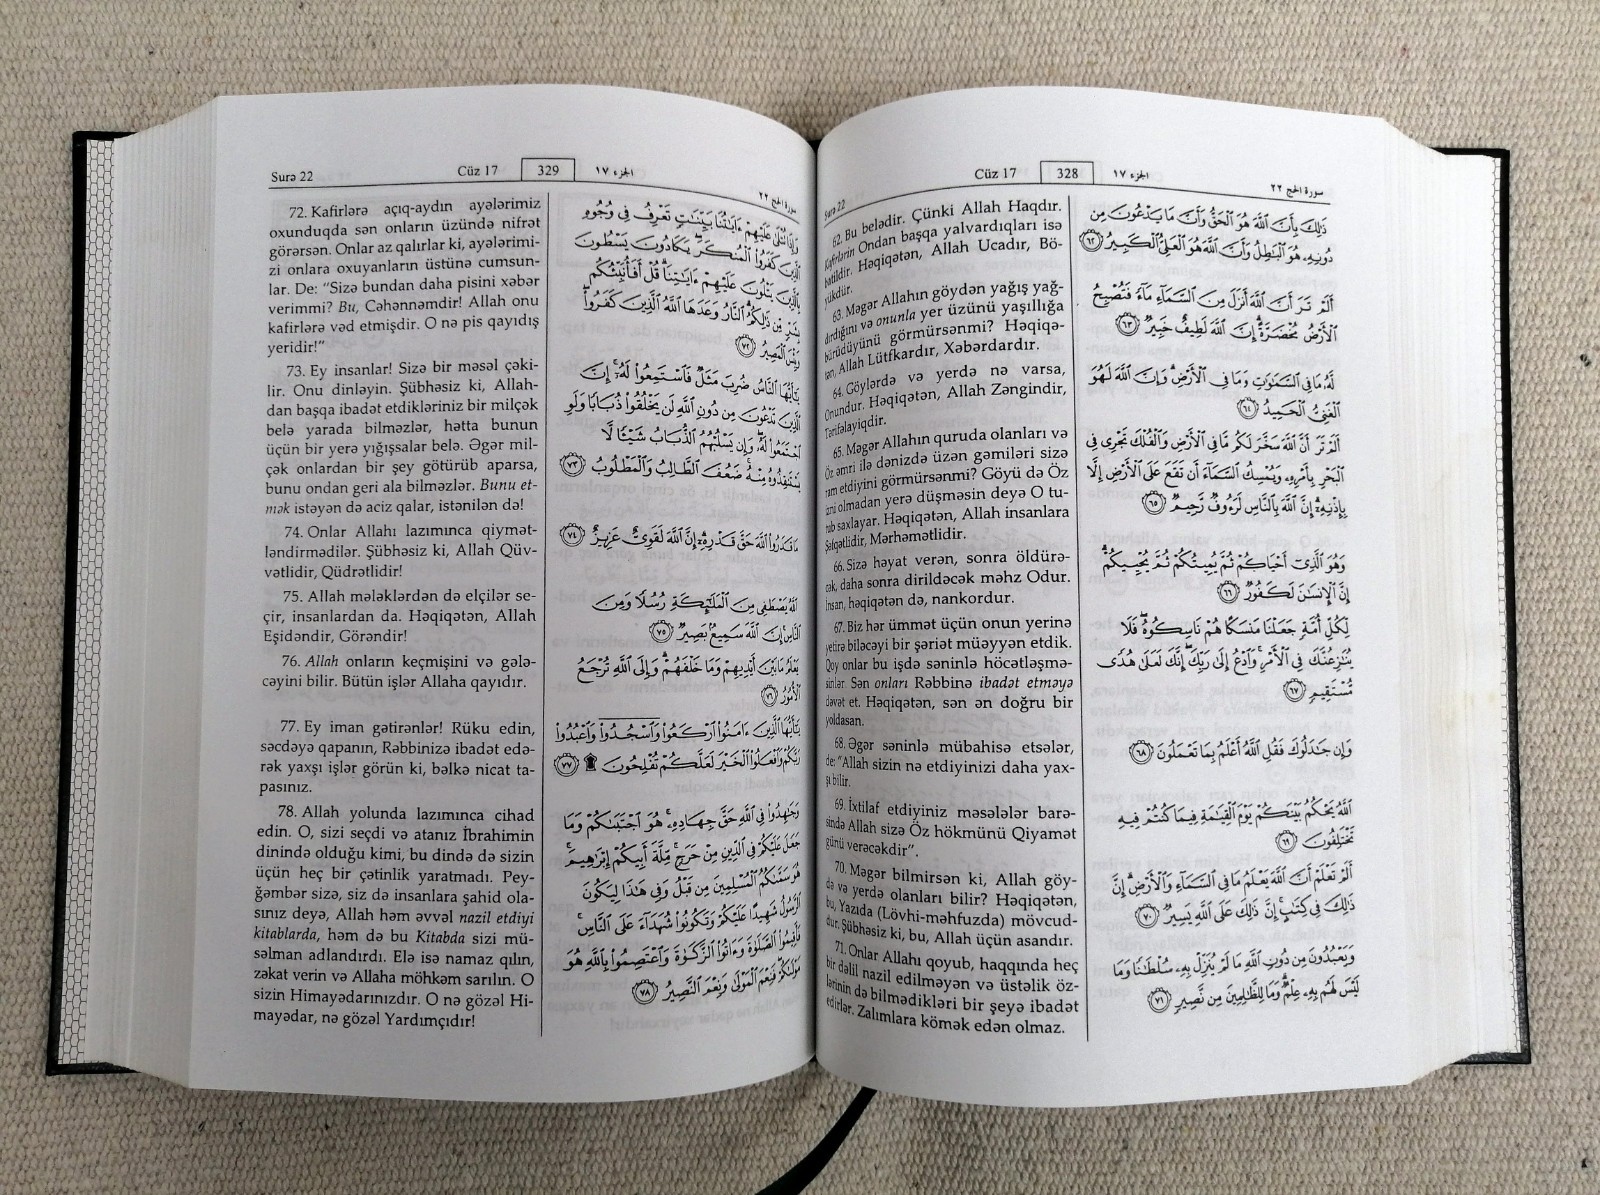 Surə 22 Cüz 17 328 الجزء ١٧ سورة الحج ٢٢
62. Bu belədir. Çünki Allah Haqdır.
Kafirlərin Ondan başqa yalvardıqları isə
batildir. Həqiqətən, Allah Ucadır, Bö-
yükdür.
63. Məgər Allahın göydən yağış yağ-
dırdığını və onunla yer üzünü yaşıllığa
bürüdüyünü görmürsənmi? Həqiqə-
tən, Allah Lütfkardır, Xəbərdardır.
64. Göylərdə və yerdə nə varsa,
Onundur. Həqiqətən, Allah Zəngindir,
Tərifəlayiqdir.
65. Məgər Allahın quruda olanları və
Öz əmri ilə dənizdə üzən gəmiləri sizə
ram etdiyini görmürsənmi? Göyü də Öz
izni olmadan yerə düşməsin deyə O tu-
tub saxlayar. Həqiqətən, Allah insanlara
Şəfqətlidir, Mərhəmətlidir.
66. Sizə həyat verən, sonra öldürə-
cək, daha sonra dirildəcək məhz Odur.
İnsan, həqiqətən də, nankordur.
67. Biz hər ümmət üçün onun yerinə
yetirə biləcəyi bir şəriət müəyyən etdik.
Qoy onlar bu işdə səninlə höcətləşmə-
sinlər. Sən onları Rəbbinə ibadət etməyə
dəvət et. Həqiqətən, sən ən doğru bir
yoldasan.
68. Əgər səninlə mübahisə etsələr,
de: “Allah sizin nə etdiyinizi daha yax-
şı bilir.
69. İxtilaf etdiyiniz məsələlər barə-
sində Allah sizə Öz hökmünü Qiyamət
günü verəcəkdir”.
70. Məgər bilmirsən ki, Allah göy-
də və yerdə olanları bilir? Həqiqətən,
bu, Yazıda (Lövhi-məhfuzda) mövcud-
dur. Şübhəsiz ki, bu, Allah üçün asandır.
71. Onlar Allahı qoyub, haqqında heç
bir dəlil nazil edilməyən və üstəlik öz-
lərinin də bilmədikləri bir şeyə ibadət
edirlər. Zalımlara kömək edən olmaz.
ذَٰلِكَ بِأَنَّ ٱللَّهَ هُوَ ٱلْحَقُّ وَأَنَّ مَا يَدْعُونَ مِن
دُونِهِۦ هُوَ ٱلْبَٰطِلُ وَأَنَّ ٱللَّهَ هُوَ ٱلْعَلِىُّ ٱلْكَبِيرُ ٦٢
أَلَمْ تَرَ أَنَّ ٱللَّهَ أَنزَلَ مِنَ ٱلسَّمَآءِ مَآءً فَتُصْبِحُ
ٱلْأَرْضُ مُخْضَرَّةً إِنَّ ٱللَّهَ لَطِيفٌ خَبِيرٌ ٦٣
لَّهُۥ مَا فِى ٱلسَّمَٰوَٰتِ وَمَا فِى ٱلْأَرْضِ وَإِنَّ ٱللَّهَ لَهُوَ
ٱلْغَنِىُّ ٱلْحَمِيدُ ٦٤
أَلَمْ تَرَ أَنَّ ٱللَّهَ سَخَّرَ لَكُم مَّا فِى ٱلْأَرْضِ وَٱلْفُلْكَ تَجْرِى فِى
ٱلْبَحْرِ بِأَمْرِهِۦ وَيُمْسِكُ ٱلسَّمَآءَ أَن تَقَعَ عَلَى ٱلْأَرْضِ إِلَّا
بِإِذْنِهِۦٓ إِنَّ ٱللَّهَ بِٱلنَّاسِ لَرَءُوفٌ رَّحِيمٌ ٦٥
وَهُوَ ٱلَّذِىٓ أَحْيَاكُمْ ثُمَّ يُمِيتُكُمْ ثُمَّ يُحْيِيكُمْ
إِنَّ ٱلْإِنسَٰنَ لَكَفُورٌ ٦٦
لِّكُلِّ أُمَّةٍ جَعَلْنَا مَنسَكًا هُمْ نَاسِكُوهُ فَلَا
يُنَٰزِعُنَّكَ فِى ٱلْأَمْرِ وَٱدْعُ إِلَىٰ رَبِّكَ إِنَّكَ لَعَلَىٰ هُدًى
مُّسْتَقِيمٍ ٦٧
وَإِن جَٰدَلُوكَ فَقُلِ ٱللَّهُ أَعْلَمُ بِمَا تَعْمَلُونَ ٦٨
ٱللَّهُ يَحْكُمُ بَيْنَكُمْ يَوْمَ ٱلْقِيَٰمَةِ فِيمَا كُنتُمْ فِيهِ
تَخْتَلِفُونَ ٦٩
أَلَمْ تَعْلَمْ أَنَّ ٱللَّهَ يَعْلَمُ مَا فِى ٱلسَّمَآءِ وَٱلْأَرْضِ إِنَّ
ذَٰلِكَ فِى كِتَٰبٍ إِنَّ ذَٰلِكَ عَلَى ٱللَّهِ يَسِيرٌ ٧٠
وَيَعْبُدُونَ مِن دُونِ ٱللَّهِ مَا لَمْ يُنَزِّلْ بِهِۦ سُلْطَٰنًا وَمَا
لَيْسَ لَهُم بِهِۦ عِلْمٌ وَمَا لِلظَّٰلِمِينَ مِن نَّصِيرٍ ٧١
Surə 22 Cüz 17 329 الجزء ١٧ سورة الحج ٢٢
72. Kafirlərə açıq-aydın ayələrimiz
oxunduqda sən onların üzündə nifrət
görərsən. Onlar az qalırlar ki, ayələrimi-
zi onlara oxuyanların üstünə cumsun-
lar. De: “Sizə bundan daha pisini xəbər
verimmi? Bu, Cəhənnəmdir! Allah onu
kafirlərə vəd etmişdir. O nə pis qayıdış
yeridir!”
73. Ey insanlar! Sizə bir məsəl çəki-
lir. Onu dinləyin. Şübhəsiz ki, Allah-
dan başqa ibadət etdikləriniz bir milçək
belə yarada bilməzlər, hətta bunun
üçün bir yerə yığışsalar belə. Əgər mil-
çək onlardan bir şey götürüb aparsa,
bunu ondan geri ala bilməzlər. Bunu et-
mək istəyən də aciz qalar, istənilən də!
74. Onlar Allahı lazımınca qiymət-
ləndirmədilər. Şübhəsiz ki, Allah Qüv-
vətlidir, Qüdrətlidir!
75. Allah mələklərdən də elçilər se-
çir, insanlardan da. Həqiqətən, Allah
Eşidəndir, Görəndir!
76. Allah onların keçmişini və gələ-
cəyini bilir. Bütün işlər Allaha qayıdır.
77. Ey iman gətirənlər! Rüku edin,
səcdəyə qapanın, Rəbbinizə ibadət edə-
rək yaxşı işlər görün ki, bəlkə nicat ta-
pasınız.
78. Allah yolunda lazımınca cihad
edin. O, sizi seçdi və atanız İbrahimin
dinində olduğu kimi, bu dində də sizin
üçün heç bir çətinlik yaratmadı. Pey-
ğəmbər sizə, siz də insanlara şahid ola-
sınız deyə, Allah həm əvvəl nazil etdiyi
kitablarda, həm də bu Kitabda sizi mü-
səlman adlandırdı. Elə isə namaz qılın,
zəkat verin və Allaha möhkəm sarılın. O
sizin Himayədarınızdır. O nə gözəl Hi-
mayədar, nə gözəl Yardımçıdır!
وَإِذَا تُتْلَىٰ عَلَيْهِمْ ءَايَٰتُنَا بَيِّنَٰتٍ تَعْرِفُ فِى وُجُوهِ
ٱلَّذِينَ كَفَرُوا۟ ٱلْمُنكَرَ يَكَادُونَ يَسْطُونَ
بِٱلَّذِينَ يَتْلُونَ عَلَيْهِمْ ءَايَٰتِنَا قُلْ أَفَأُنَبِّئُكُم
بِشَرٍّ مِّن ذَٰلِكُمُ ٱلنَّارُ وَعَدَهَا ٱللَّهُ ٱلَّذِينَ كَفَرُوا۟
وَبِئْسَ ٱلْمَصِيرُ ٧٢
يَٰٓأَيُّهَا ٱلنَّاسُ ضُرِبَ مَثَلٌ فَٱسْتَمِعُوا۟ لَهُۥٓ إِنَّ
ٱلَّذِينَ تَدْعُونَ مِن دُونِ ٱللَّهِ لَن يَخْلُقُوا۟ ذُبَابًا وَلَوِ
ٱجْتَمَعُوا۟ لَهُۥ وَإِن يَسْلُبْهُمُ ٱلذُّبَابُ شَيْـًٔا لَّا
يَسْتَنقِذُوهُ مِنْهُ ضَعُفَ ٱلطَّالِبُ وَٱلْمَطْلُوبُ ٧٣
مَا قَدَرُوا۟ ٱللَّهَ حَقَّ قَدْرِهِۦٓ إِنَّ ٱللَّهَ لَقَوِىٌّ عَزِيزٌ ٧٤
ٱللَّهُ يَصْطَفِى مِنَ ٱلْمَلَٰٓئِكَةِ رُسُلًا وَمِنَ
ٱلنَّاسِ إِنَّ ٱللَّهَ سَمِيعٌۢ بَصِيرٌ ٧٥
يَعْلَمُ مَا بَيْنَ أَيْدِيهِمْ وَمَا خَلْفَهُمْ وَإِلَى ٱللَّهِ تُرْجَعُ
ٱلْأُمُورُ ٧٦
يَٰٓأَيُّهَا ٱلَّذِينَ ءَامَنُوا۟ ٱرْكَعُوا۟ وَٱسْجُدُوا۟ وَٱعْبُدُوا۟
رَبَّكُمْ وَٱفْعَلُوا۟ ٱلْخَيْرَ لَعَلَّكُمْ تُفْلِحُونَ ۩ ٧٧
وَجَٰهِدُوا۟ فِى ٱللَّهِ حَقَّ جِهَادِهِۦ هُوَ ٱجْتَبَىٰكُمْ وَمَا
جَعَلَ عَلَيْكُمْ فِى ٱلدِّينِ مِنْ حَرَجٍ مِّلَّةَ أَبِيكُمْ إِبْرَٰهِيمَ
هُوَ سَمَّىٰكُمُ ٱلْمُسْلِمِينَ مِن قَبْلُ وَفِى هَٰذَا لِيَكُونَ
ٱلرَّسُولُ شَهِيدًا عَلَيْكُمْ وَتَكُونُوا۟ شُهَدَآءَ عَلَى ٱلنَّاسِ
فَأَقِيمُوا۟ ٱلصَّلَوٰةَ وَءَاتُوا۟ ٱلزَّكَوٰةَ وَٱعْتَصِمُوا۟ بِٱللَّهِ هُوَ
مَوْلَىٰكُمْ فَنِعْمَ ٱلْمَوْلَىٰ وَنِعْمَ ٱلنَّصِيرُ ٧٨